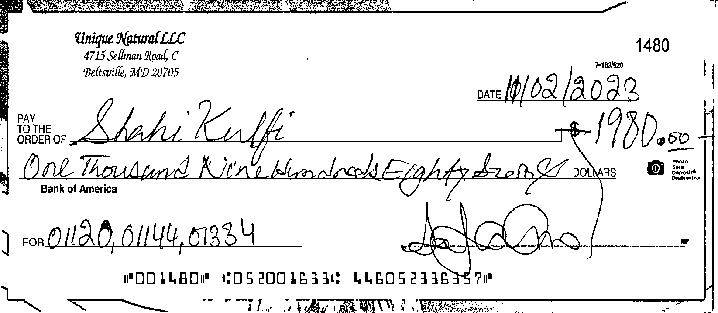 Unique Natural LLC
4715 Sellman Road, C
Beltsville, MD 20705
1480
DATE 11/02/2023
PAY
TO THE
ORDER OF Shahi Kulfi $ 1980.00
One Thousand Nine Hundreds Eighty DOLLARS
Photo
Safe
Deposit®
Bank of America
FOR 01120, 01144, 01334
⑈001480⑈ ⑆052001633⑆ 446052336357⑈